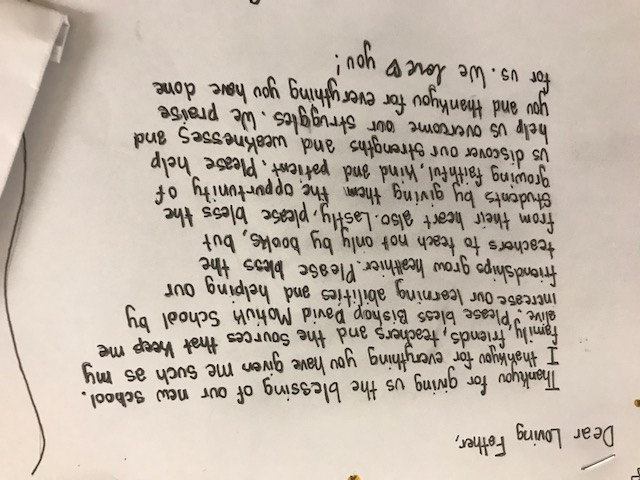 Dear Loving Father,
Thankyou for giving us the blessing of our new school.
I thankyou for everything you have given me such as my
family, friends, teachers and the sources that keep me
alive. Please bless Bishop David Motiuk School by
increase our learning abilities and helping our
friendships grow healthier. Please bless the
teachers to teach not only by books, but
from their heart also. Lastly, please bless the
students by giving them the oppurtunity of
growing faithful, kind and patient. Please help
us discover our strengths and weaknesses and
help us overcome our struggles. We praise
you and thankyou for everything you have done
for us. We love you!